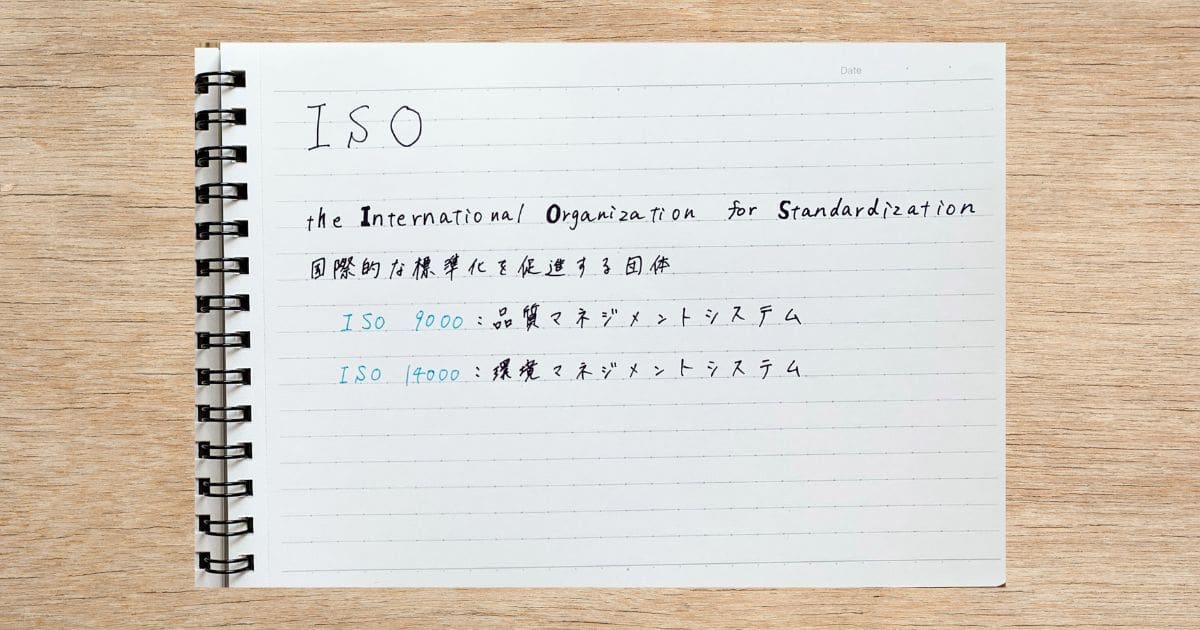 Date
ISO
the International Organization for Standardization
国際的な標準化を促進する団体
ISO 9000：品質マネジメントシステム
ISO 14000：環境マネジメントシステム